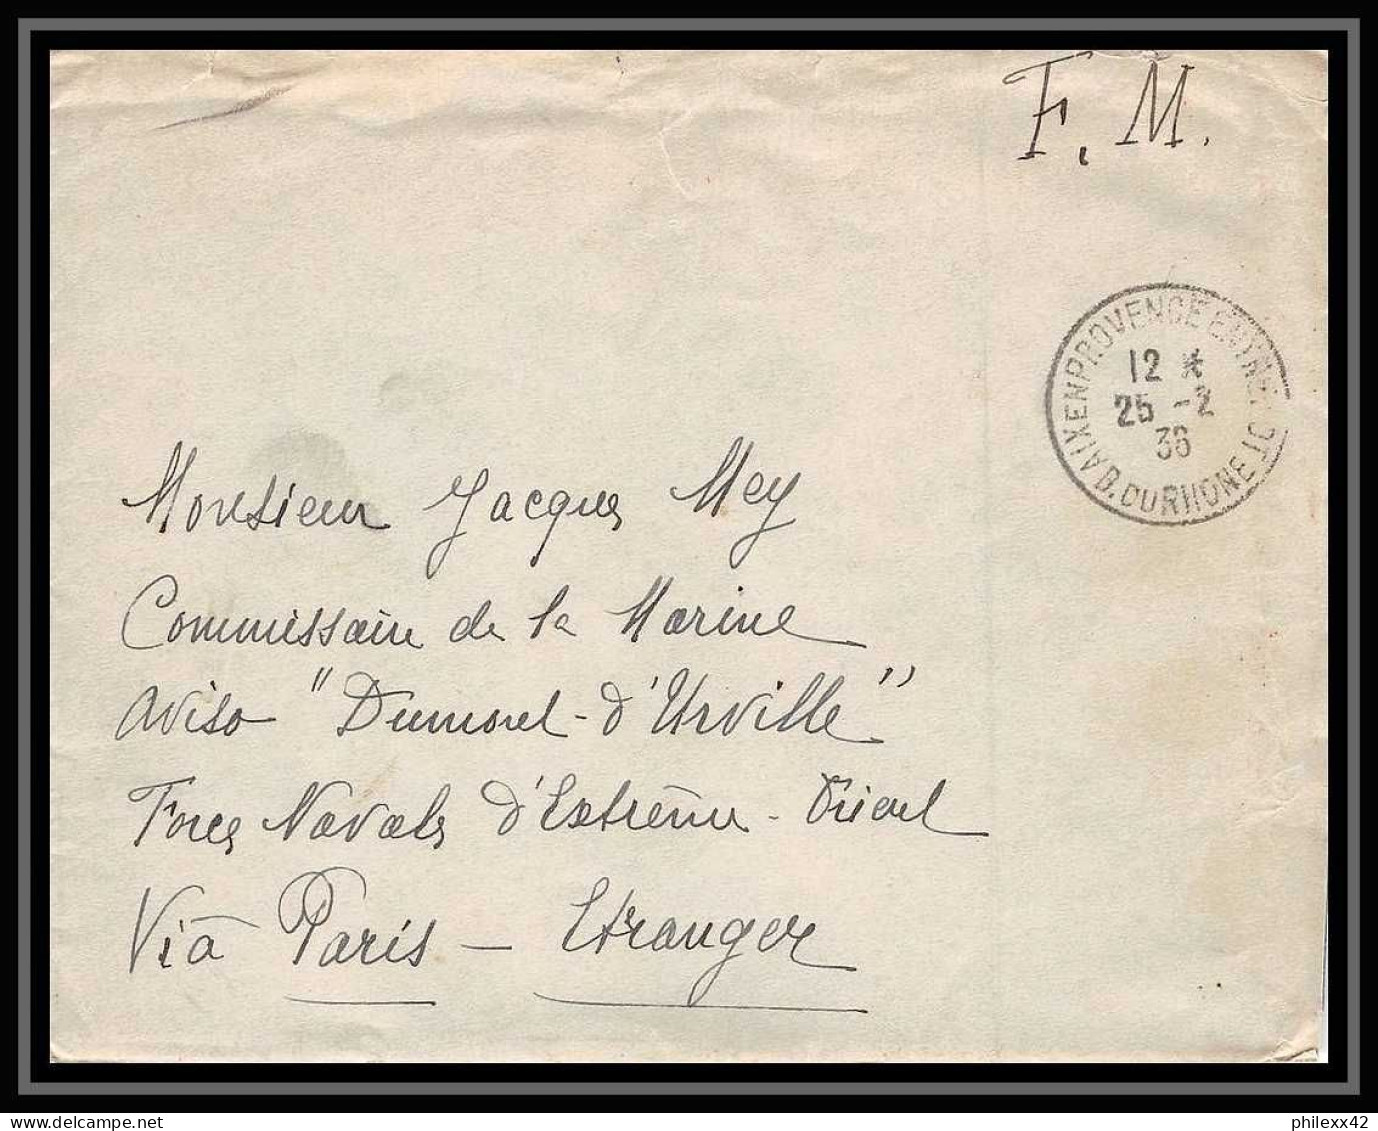 F. M.
AIX EN PROVENCE ENTREPT
12 *
25 -2
36
B. DU RHONE
Monsieur Jacques Mey
Commissaire de la Marine
aviso "Dumont-d'Urville"
Forces Navales d'Extrême-Orient
Via Paris - Etranger
philexx42